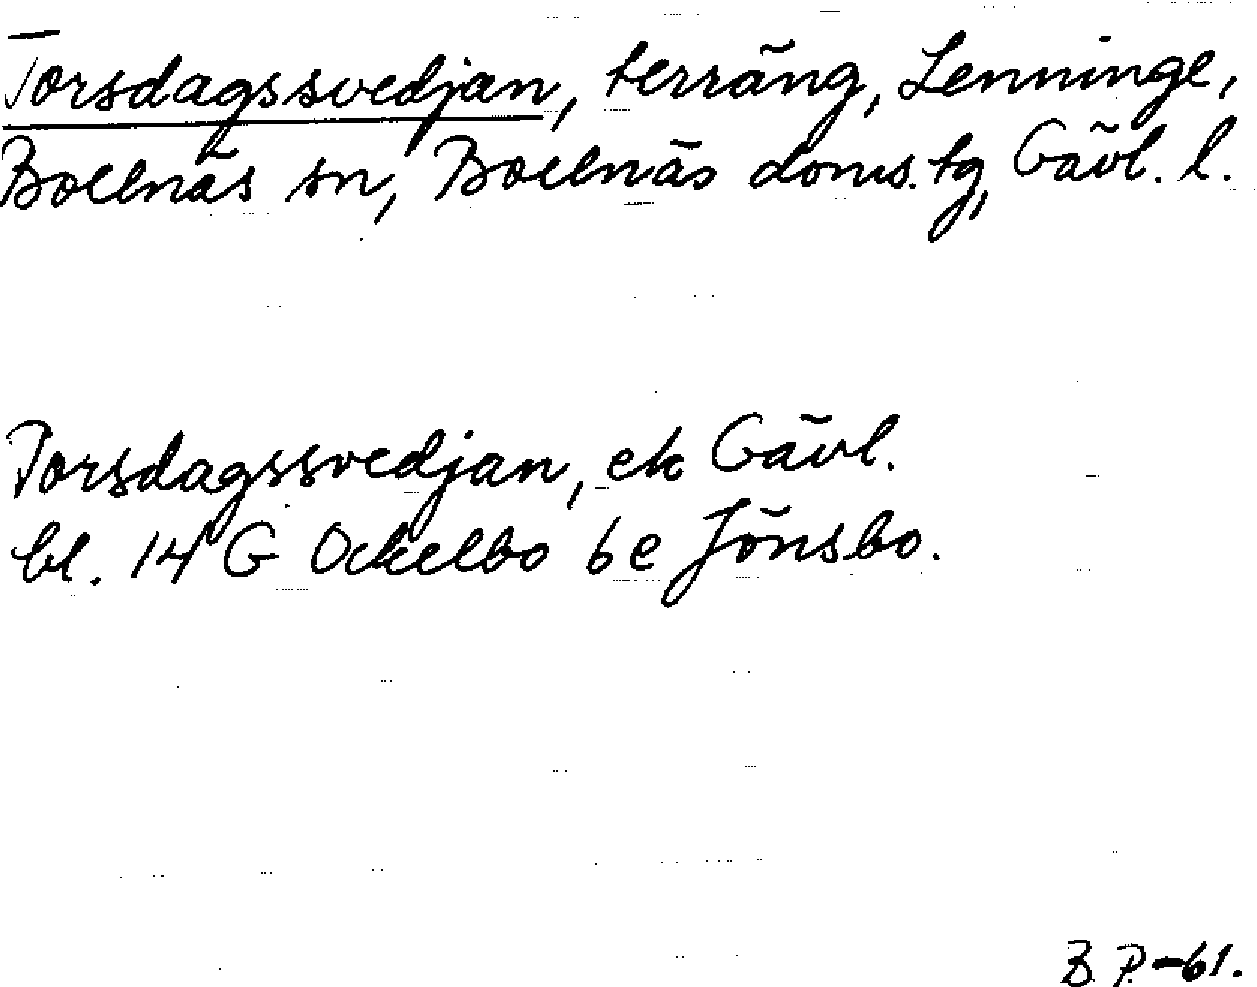 Torsdagssvedjan, terräng, Lenninge,
Bollnäs sn, Bollnäs doms. tg, Gävl. l.
Torsdagssvedjan, ek Gävl.
bl. 14 G Ockelbo 6e Jönsbo.
B. P. -61.